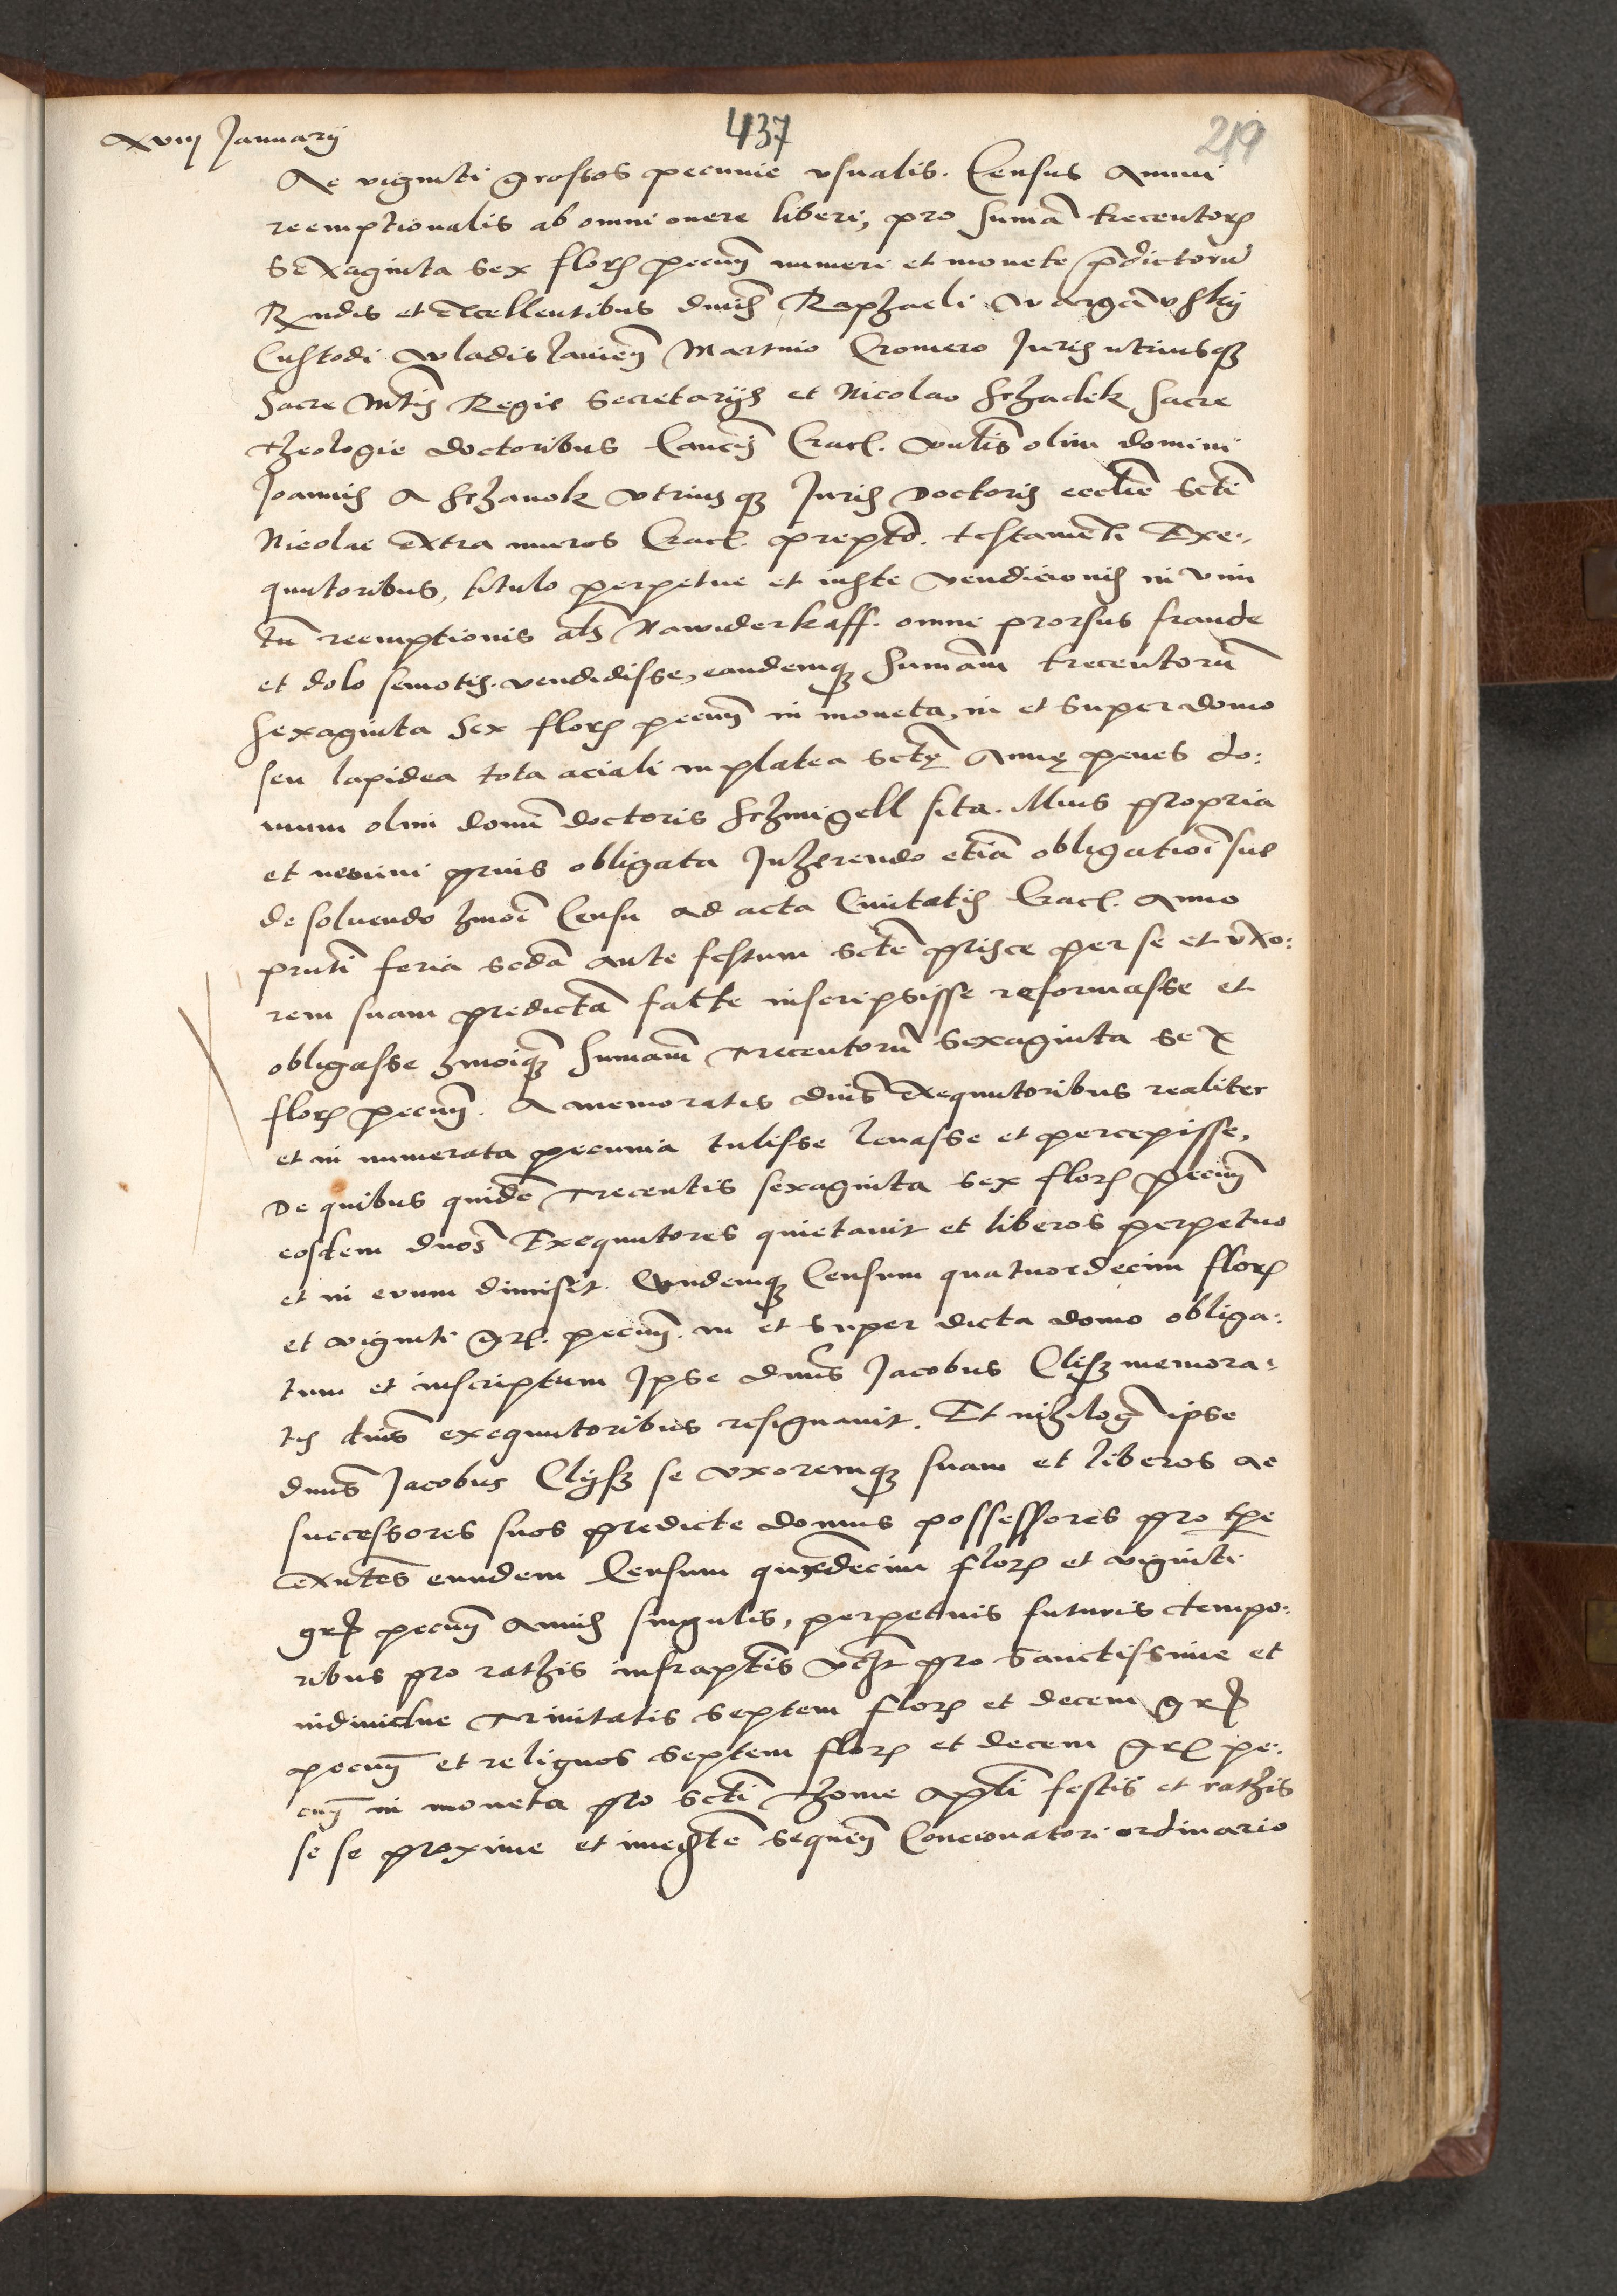 xviij Januarij
437
219
Ac viginti grossos pecunie usualis. Census Annui
reemptionalis ab omni onere liberi, pro sumã trecentorȝ
Sexaginta sex florȝ pecuñ numeri et monete p̃dictorũ
Rx̃ndis et excellentibus dnis Raphaeli
Custodi Wladislavieñ Martino Cromero Juris utriusqȝ
Sacre Mtis Regie Secretarijs et Nicolao Schadek sacre
theologie doctoribus Canocis Cracl. olim domini
Joannis A Schanok Utriusqȝ Juris Doctoris ecclie Scti
Nicolai extra muros Cracl. prepto. testamenti Exe:,
quutoribus, titulo perpetue et iuste vendicionis in vim
tñ reemptionis als Nawiderkaff. omni prorsus fraude
et dolo semotis. vendidisse, eandemqȝ sumam trecentorũ
sexaginta sex florȝ pecuñ in moneta, in et super domo
seu lapidea tota aciali in platea sctę Annę penes do:
mum olim domi doctoris Schmigell sita. Mus propria
et nemini prius obligata Inherendo etiã obligatioĩ sue
de soluendo hmoĩ Censu ad acta Ciuitatis Cracl. Anno
pñti feria scdã ante festum scte prisce per se et uxo:
rem suam predictã facte inscripsisse reformasse et
obligasse hmoiqȝ sumam trecentorũ sexaginta sex
florȝ pecuñ. A memoratis dnis exequutoribus realiter
et in numerata pecunia tulisse levasse et percepisse,
De quibus quidẽ trecentis sexaginta sex florȝ pecuñ
eosdem dnos Exequutores quietauit et liberos perpetuo
et in evum dimisit. Eundemqȝ Censum quatuordecim florȝ
et viginti grl. pecuñ. in et super dicta domo obliga:
tum et inscriptum Ipse dnus Jacobus Clisȝ memora:
tis dnis exequutoribus resignauit. Et nihilog ipse
dnus Jacobus Clijsȝ se uxoremqȝ suam et liberos ac
successores suos predicte domus possessores pro tpe
exñtes eundem Censum quatuordecim florȝ et viginti
grȝ pecuñ Annis singulis, perpetuis futuris tempo:
ribus pro rathis infraptis vcȝt pro Sanctissime et
indiuidue trinitatis septem florȝ et decem grȝ
pecuñ et reliquos septem florȝ et decem grl pe:
cuñ in moneta pro scti thome apli festis et rathis
se se proxime et imedte sequeñ Concionatori ordinario